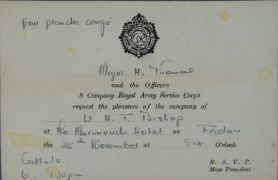 pour prendre congé
Major H.
and the Officers
8 Company Royal Army Service Corps
request the pleasure of the company of
Lt H. T. Bishop
at the Hotel on Friday
the 28th November at Six O'clock
Cocktails
6. R. S. V. P.
Mess President